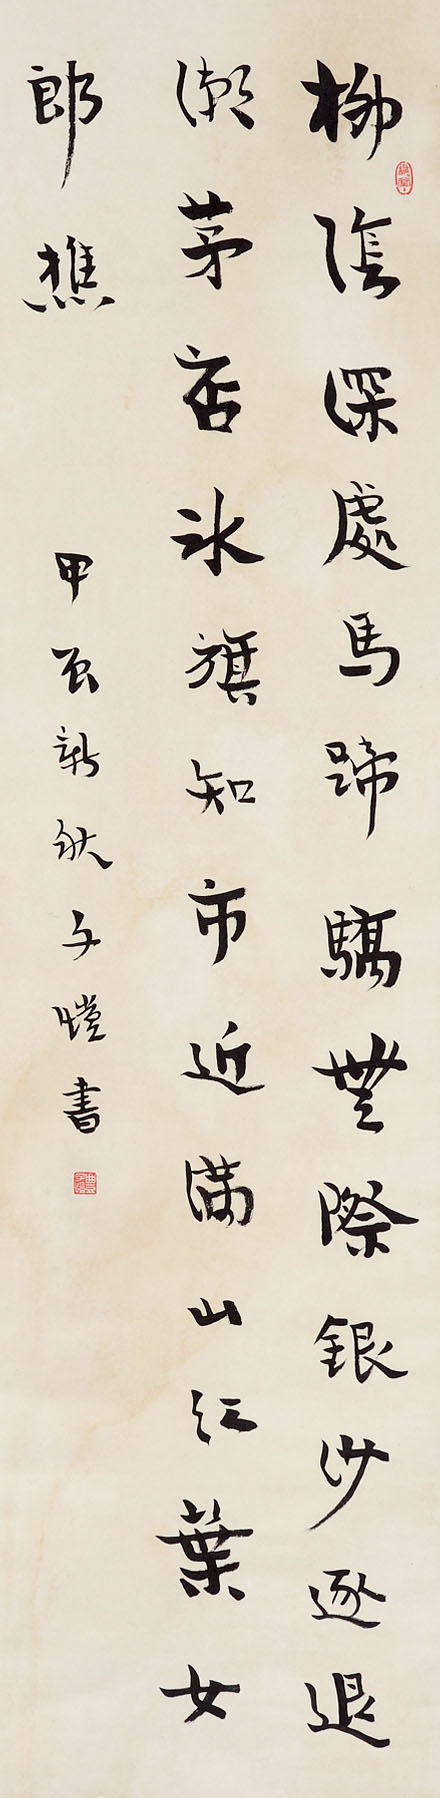 柳陰深處馬蹄驕無際銀沙逐退
潮茅店冰旗知市近滿山紅葉女
郎樵
甲辰新秋子愷書